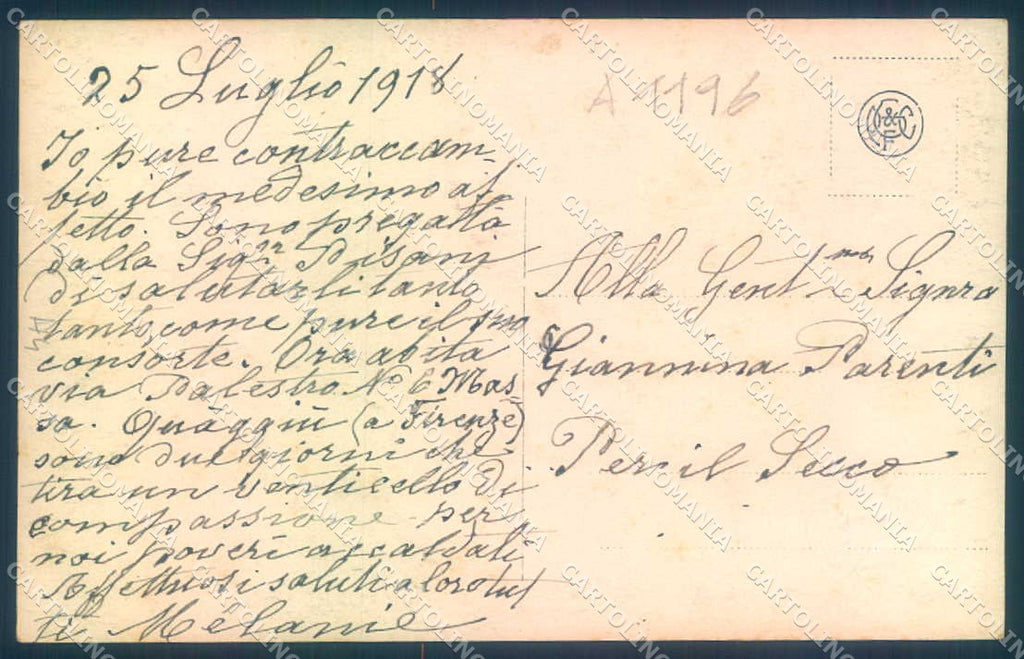 25 Luglio 1918
Io pure contraccam-
bio il medesimo af-
fetto. Sono pregatta
dalla Sigra Pisani
di salutarti tanto
tanto, come pure il suo
consorte. Ora abita
via Palestro No 6 Mas-
sa. Quaggiù (a Firenze)
sono due giorni che
tira un venticello di
compassione per
noi poveri accaldati
Affettuosi saluti a loro tut
ti Mélanie
A 1196
C&C
F
Alla Gentma Signra
Giannina Parenti
Per il Secco
CARTOLINOMANIA